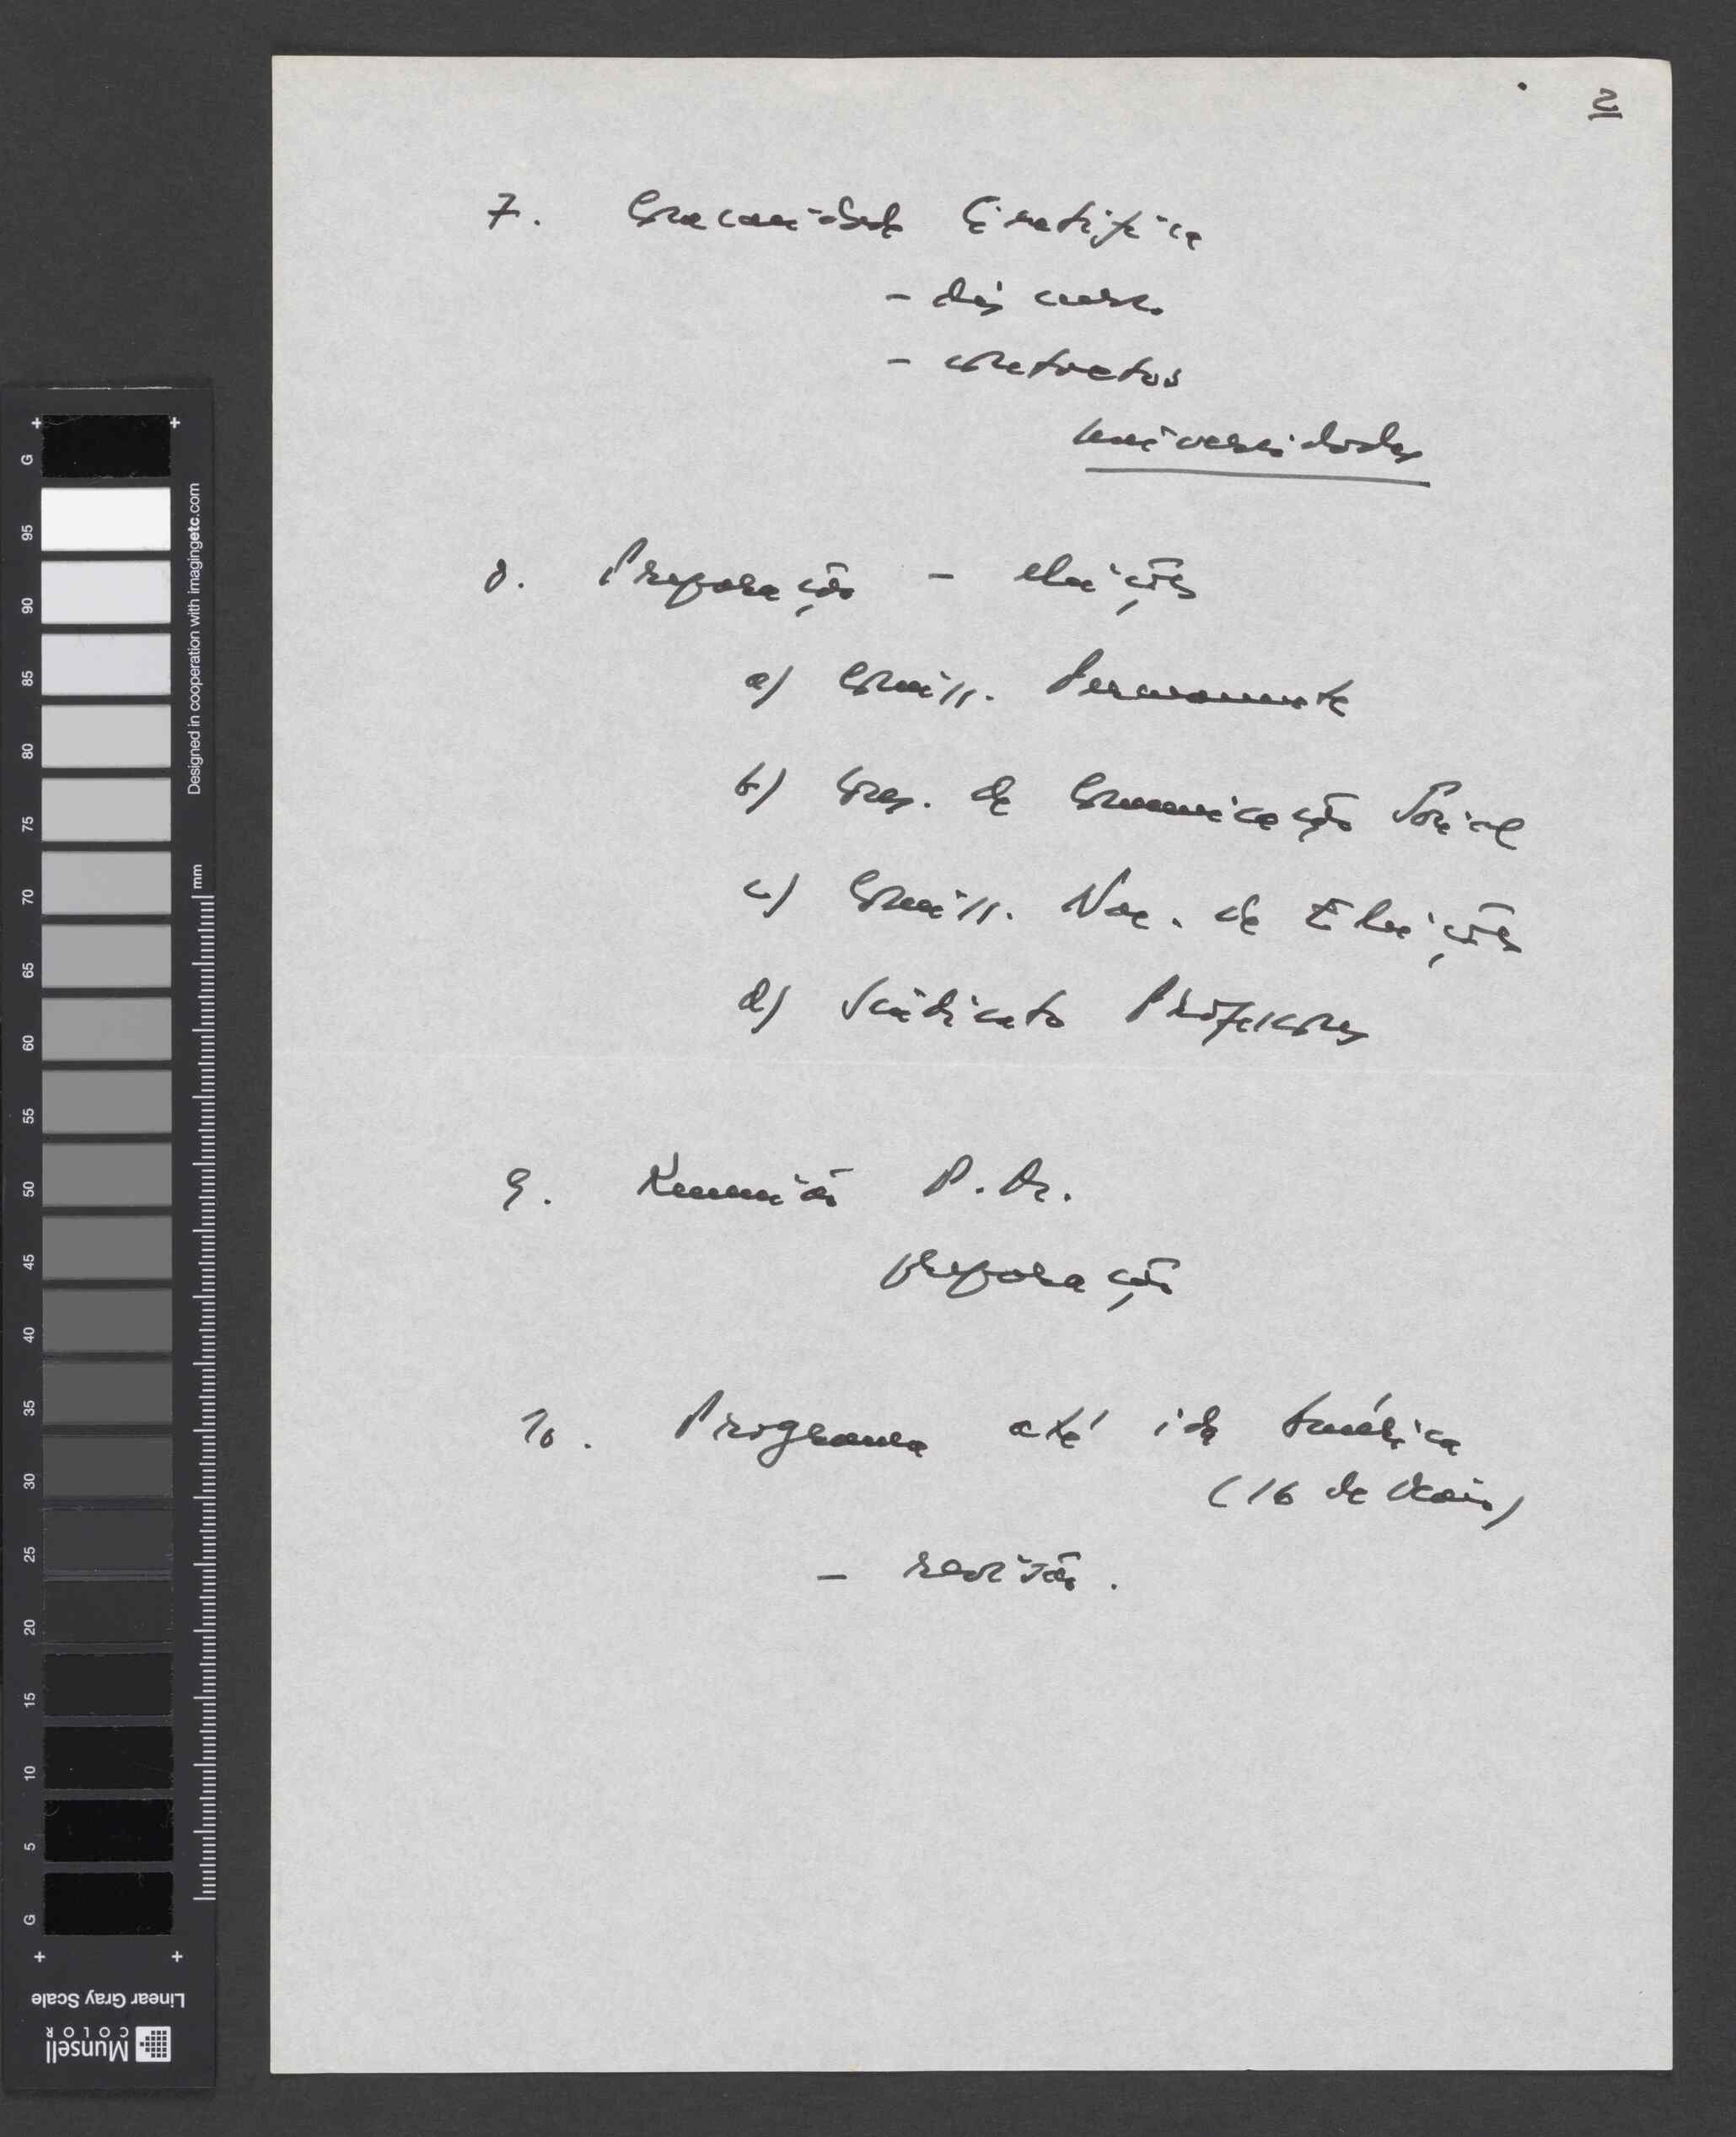 2
7. Comunidade Científica
- discurso
- contactos
universidades
8. Preparação - eleições
a) Comiss. Permanente
b) Cons. de Comunicação Social
c) Comiss. Nac. de Eleições
d) Sindicato Professores
9. Reunião P. Ar.
preparação
10. Programa até ida América
(16 de Maio)
- revisão.
+ +
G
95
90
85
80
75
70
65
60
55
50
45
40
35
30
25
20
15
10
5
G
+ +
Designed in cooperation with imagingetc.com
mm
Linear Gray Scale
Munsell
COLOR